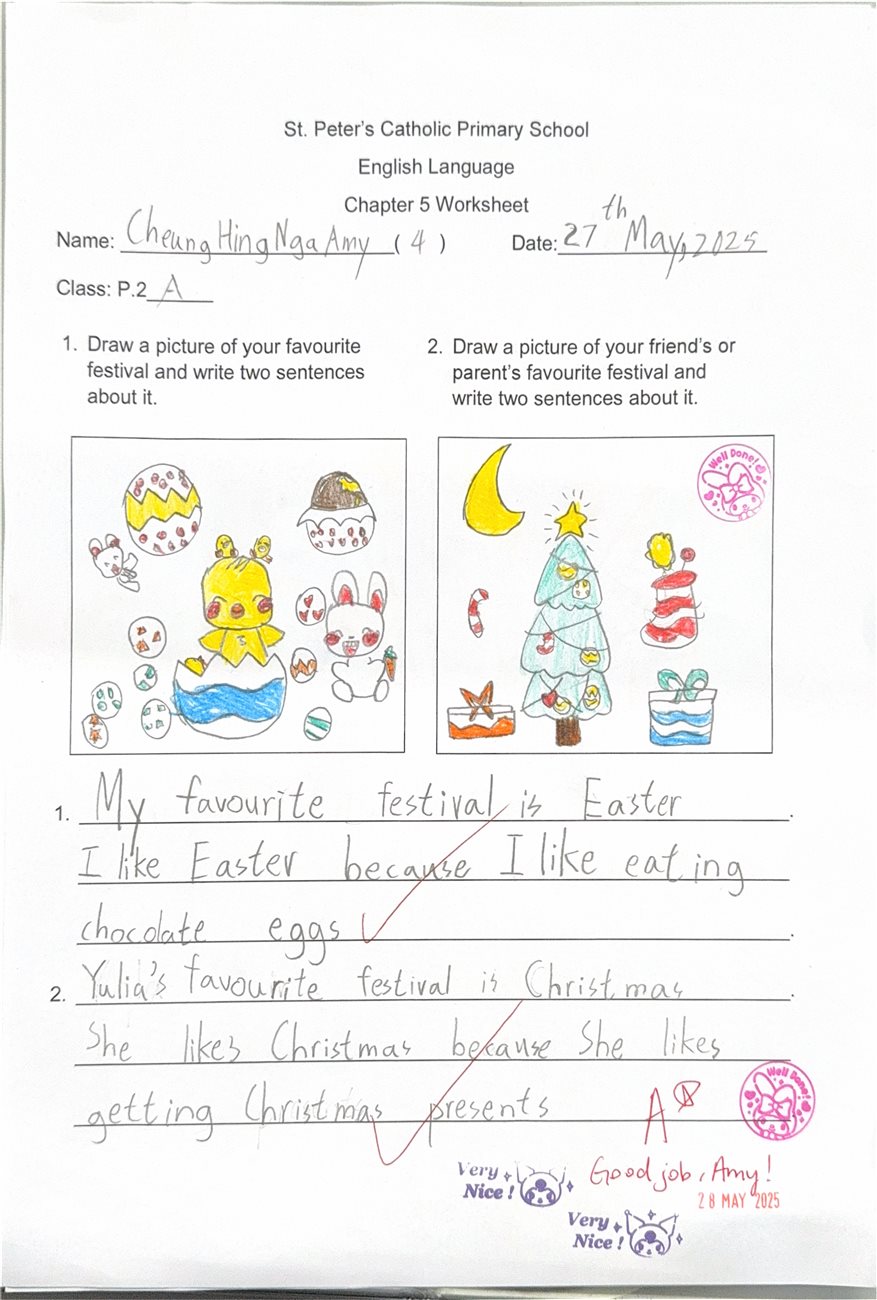 St. Peter's Catholic Primary School
English Language
Chapter 5 Worksheet
Name: Cheung Hing Nga Amy ( 4 ) Date: 27th May, 2025
Class: P.2 A
1. Draw a picture of your favourite
festival and write two sentences
about it.
2. Draw a picture of your friend's or
parent's favourite festival and
write two sentences about it.
Well Done!
3
1. My favourite festival is Easter.
I like Easter because I like eating
chocolate eggs.
2. Yulia's favourite festival is Christmas.
She likes Christmas because She likes
getting Christmas presents
A
Well Done!
Good job, Amy!
28 MAY 2025
Very
Nice!
Very
Nice!